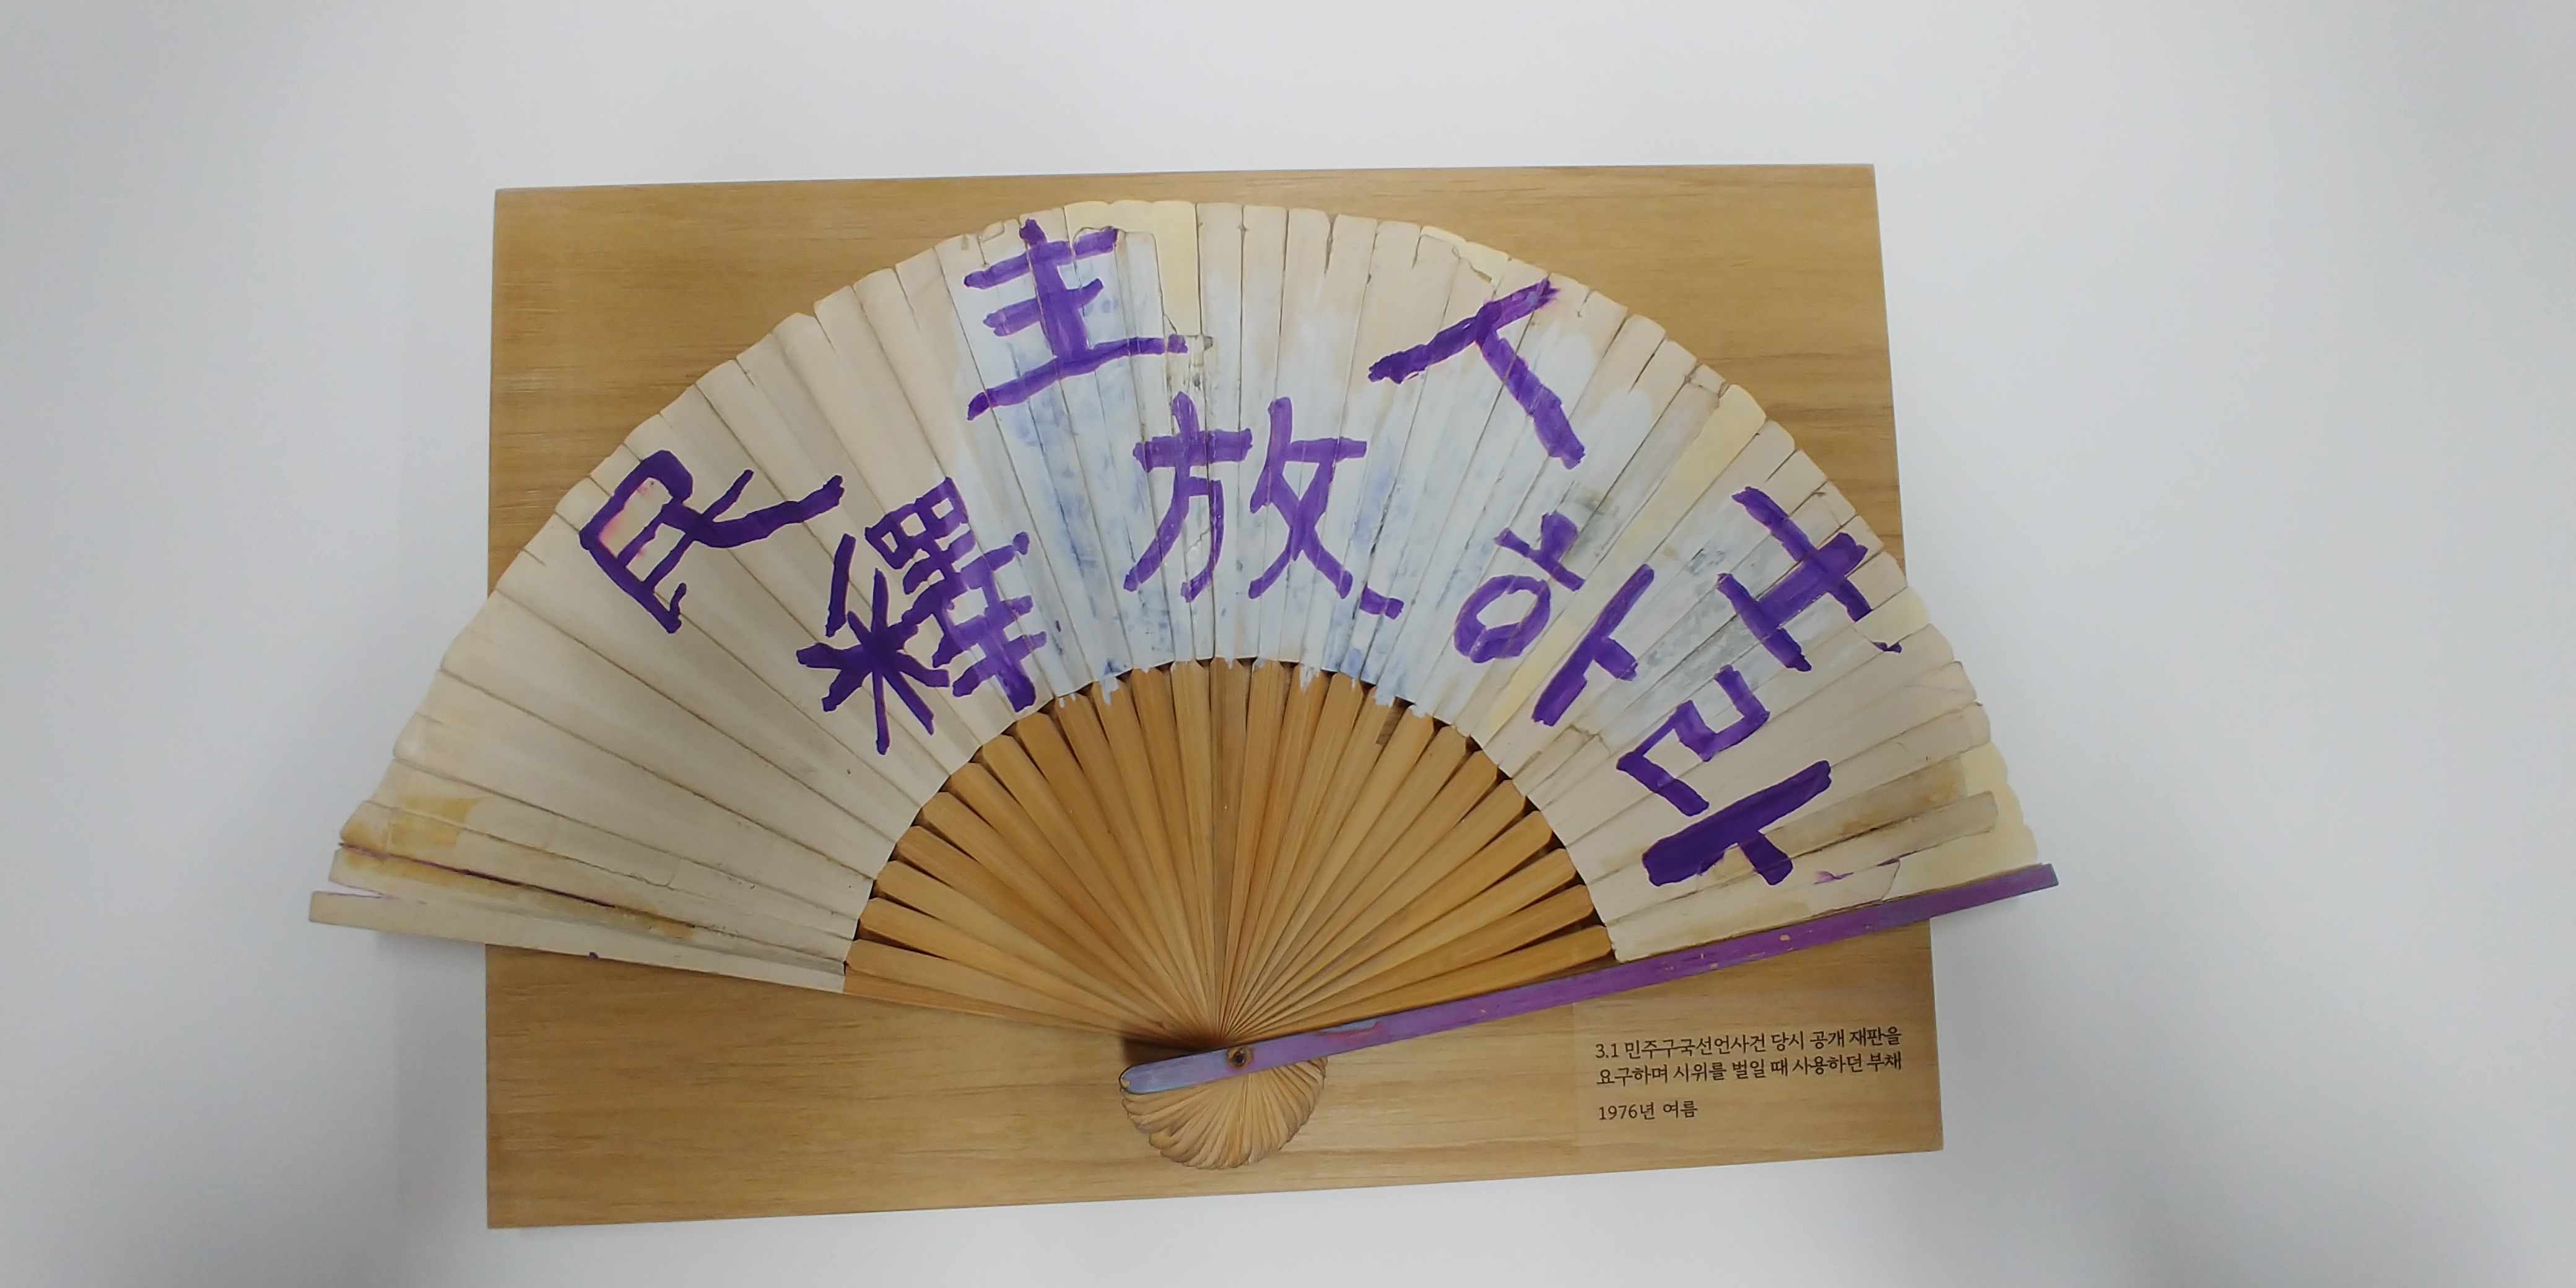 民主人士
釋放하라
3.1 민주구국선언사건 당시 공개 재판을
요구하며 시위를 벌일 때 사용하던 부채
1976년 여름